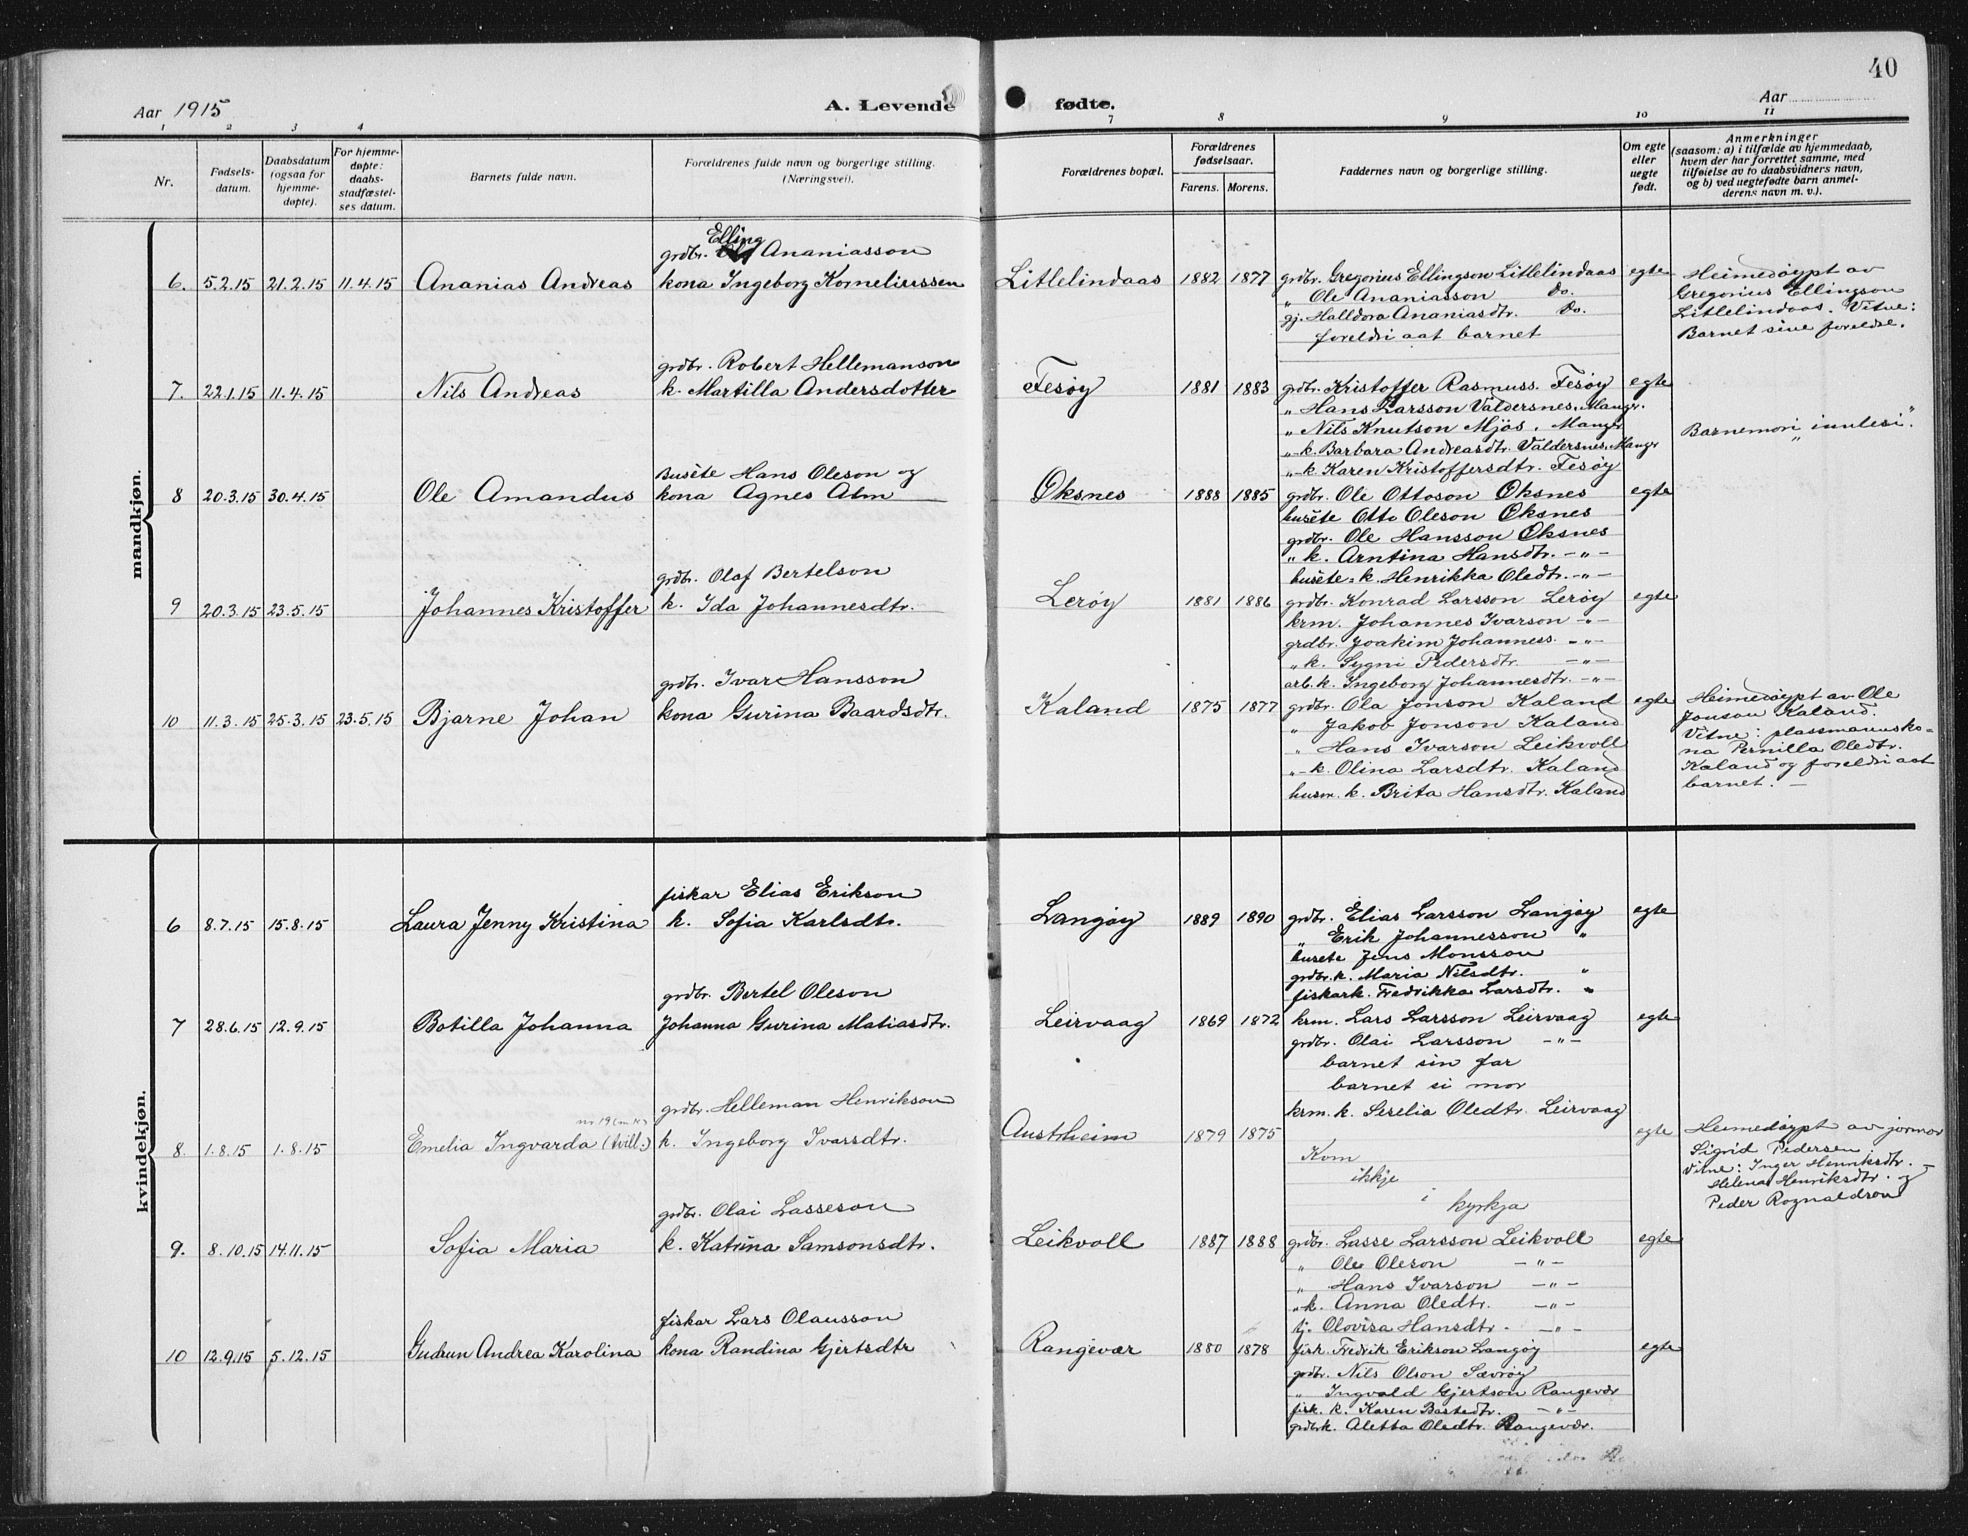 40
Aar 1915
A. Levende fødte.
Aar
1 2 3 4 7 8 9 10 11
Nr.
Fødsels-
datum.
Daabsdatum
(ogsaa for
hjemme-
døpte).
For hjemme-
døpte:
daabs-
stadfæstel-
ses datum.
Barnets fulde navn.
Forældrenes fulde navn og borgerlige stilling.
(Næringsvei).
Forældrenes bopæl.
Forældrenes
fødselsaar.
Farens. Morens.
Faddernes navn og borgerlige stilling.
Om egte
eller
uegte
født.
Anmerkninger
(saasom: a) i tilfælde av hjemmedaab,
hvem der har forrettet samme, med
tilføielse av to daabsvidners navn,
og b) ved uegtefødte barn anmel-
derens navn m. v.).
mandkjøn.
6. 5.2.15 21.2.15 11.4.15 Ananias Andreas
Elling
grdbr. Ananiasson
kona Ingeborg Korneliussen
Litlelindaas 1882 1877
grdbr. Gregorius Ellingson Litlelindaas
" Ole Ananiasson Do.
gj. Halldora Ananiasdtr. Do.
foreldri aat barnet
egte
Heimedøypt av
Gregorius Ellingson
Litlelindaas. Vitne:
Barnet sine foreldre.
7. 22.1.15 11.4.15 Nils Andreas
grdbr. Robert Hellemanson
k. Martilla Andersdotter
Fesøy 1881 1883
grdbr. Kristoffer Rasmuss. Fesøy
" Hans Larsson Valdersnes, Manger.
" Nils Knutson Mjøs, Manger
"-k. Barbara Andreasdtr. Valdersnes, Mangr
"-k. Karen Kristoffersdtr. Fesøy
egte
Barnemori „innlesi".
8 20.3.15 30.4.15 Ole Amandus
Busete Hans Oleson og
kona Agnes Alm
Oksnes 1888 1885
grdbr. Ole Ottoson Oksnes
husete Otto Oleson Oksnes
grdbr. Ole Hansson Oksnes
" k. Arntina Hansdtr. -"-
husete-k. Henrikka Oledtr. -"-
egte
9 20.3.15 23.5.15 Johannes Kristoffer
grdbr. Olaf Bertelson
k. Ida Johannesdtr.
Lerøy 1881 1886
grdbr. Konrad Larsson Lerøy
krm. Johannes Ivarson -"-
grdbr. Joakim Johanness. -"-
"k. Sygni Pedersdtr. -"-
arb.k. Ingeborg Johannesdtr. -"-
egte
10 11.3.15 25.3.15 23.5.15 Bjarne Johan
grdbr. Ivar Hansson
kona Gurina Baardsdtr.
Kaland 1875 1877
grdbr. Ola Jonson Kaland
" Jakob Jonson Kaland
" Hans Ivarson Leikvoll
"-k. Olina Larsdtr. Kaland
husm. k. Brita Hansdtr. Kaland
egte
Heimedøypt av Ole
Jonson Kaland.
Vitne: plassmannsko-
na Pernilla Oledtr.
Kaland og foreldri aat
barnet. —
kvindekjøn.
6 8.7.15 15.8.15 Laura Jenny Kristina
fiskar Elias Erikson
k. Sofia Karlsdtr.
Langøy 1889 1890
grdbr. Elias Larsson Langøy
" Erik Johannesson "
husete Jens Monsson
grdbr.k. Maria Nilsdtr. "
fiskark. Fredrikka Larsdtr. "
egte
7 28.6.15 12.9.15 Botilla Johanna
grdbr. Bertel Oleson
Johanna Gurina Matiasdtr.
Leirvaag 1869 1872
krm. Lars Larsson Leirvaag
grdbr. Olai Larsson -"-
barnet sin far
barnet si mor
krm. k. Serelia Oledtr. Leirvaag
egte
8. 1.8.15 1.8.15 Emelia Ingvarda (tvill.)
grdbr. Helleman Henrikson
k. Ingeborg Ivarsdtr.
Austrheim 1879 1875
Kom
ikkje
i
kyrkja
egte
Heimedøypt av jormor
Sigrid Pedersen
Vitne: Inger Henriksdtr. -
Helena Henriksdtr. og
Peder Rognaldson
9. 8.10.15 14.11.15 Sofia Maria
grdbr. Olai Lasseson
k. Katrina Samsonsdtr.
Leikvoll 1887 1888
grdbr. Lasse Larsson Leikvoll
" Ole Oleson -"-
" Hans Ivarson -"-
"k. Anna Oledtr. -"-
tj. Olovisa Hansdtr. -"-
egte
10 12.9.15 5.12.15 Gudrun Andrea Karolina
fiskar Lars Olausson
kona Randina Gjertsdtr
Rangevær 1880 1878
fisk. Fredrik Erikson Langøy
grdbr. Nils Olson Sævrøy
" Ingvald Gjertson Rangevær
fisk. k. Karen Bastedtr. -"-
grdbrk. Aletta Oledtr. Rangevær.
egte